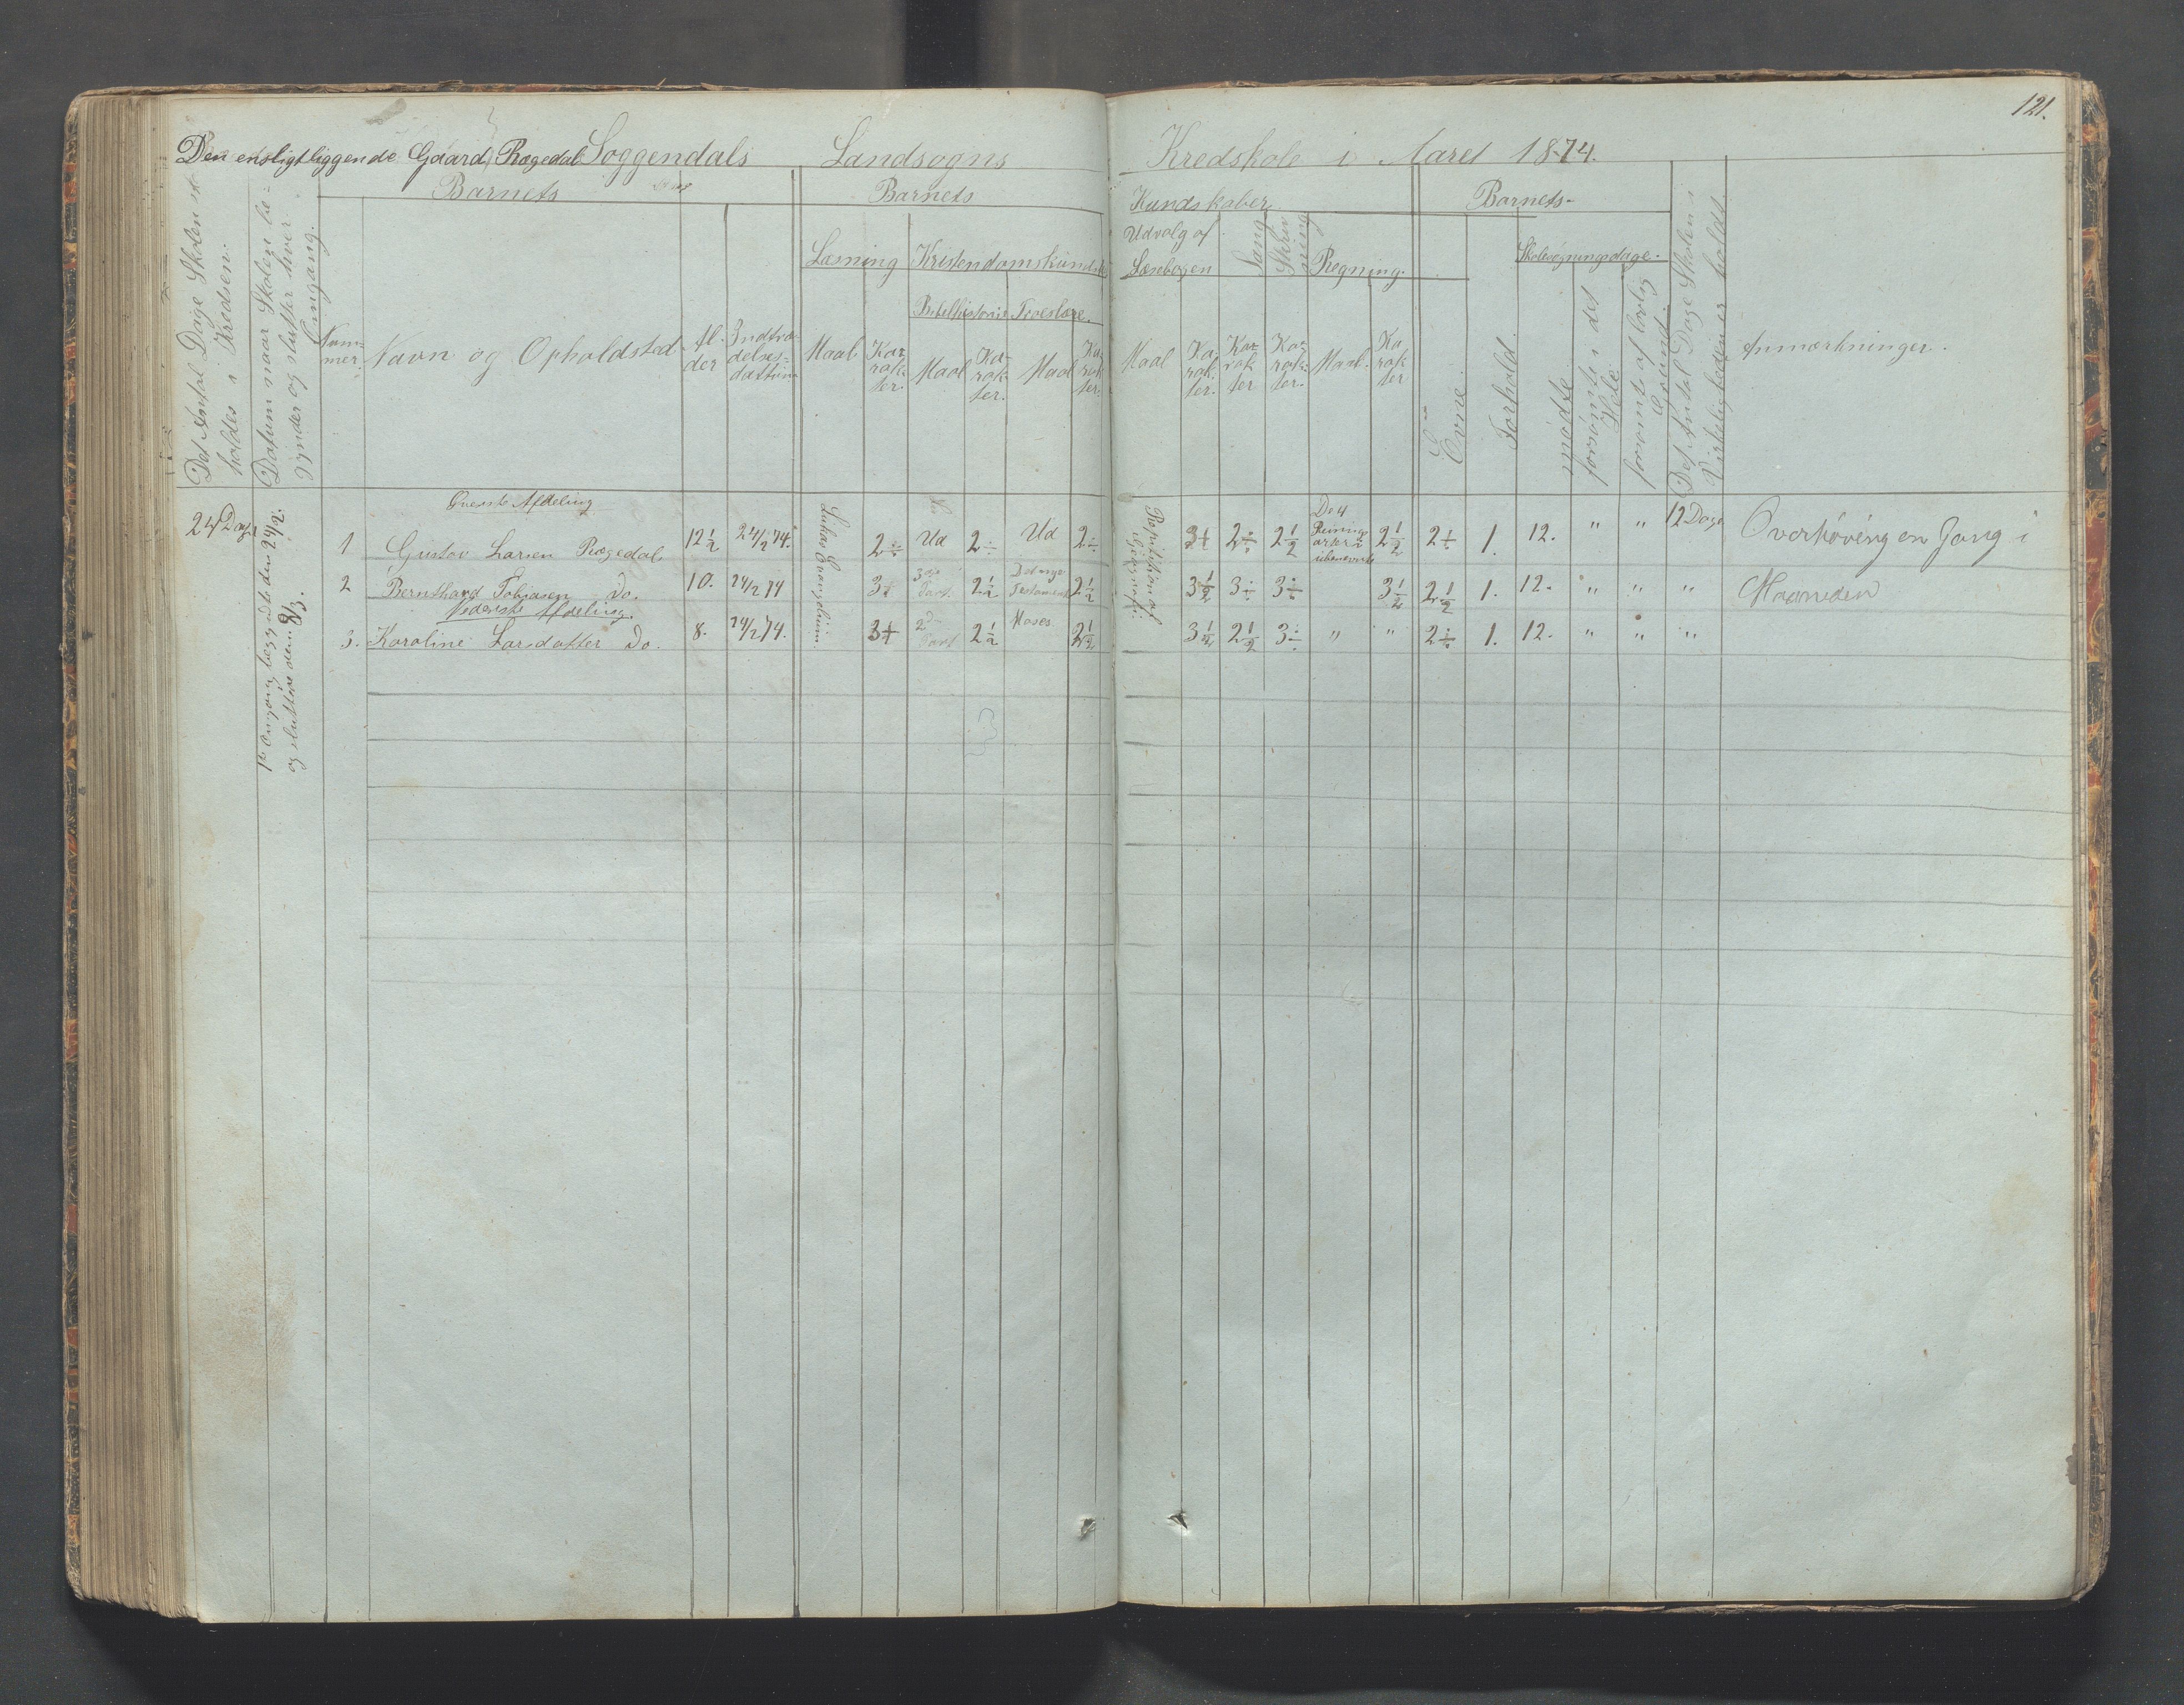 121.
Den ensligtliggende Gaard, Rægedal Soggendals Landsogns Kredskole i Aaret 1874.
Det Antal Dage Skolen skal holdes i Kredsen.
Datum naar Skolen begynder og slutter hver Omgang.
Barnets
Nummer.
Navn og Opholdsted.
Alder
Indtrædelsesdatum
Barnets
Læsning
Maal.
Karakter.
Kristendomskundsk
Bibelhistorie
Maal
Karakter.
Troeslære.
Maal
Karakter.
Kundskaber
Udvalg af Læsebogen
Maal
Karakter.
Sang
Karakter
Skrivning
Karakter.
Regning.
Maal.
Karakter
Barnets
Evne.
Forhold.
Skolesøgningsdage.
mødte
forsømte i det Hele.
forsømte af lovlig Grund.
Det Antal Dage Skolen i Virkeligheden er holdt.
Anmærkninger.
24 Dage
1ste Omgang begyndte den 24/2. og sluttede den 9/3.
Øverste Afdeling
1 Gustav Larsen Rægedal 12½ 24/2 74. Lukas Evangelium. 2÷ Ud 2÷ Ud 2÷ Repitition af Geografi. 3+ 2÷ 2½ De 4 Regningsarter i ubenævnte 2½ 2÷ 1. 12. " " 12 Dage Overhøring en Gang i
2 Bernthard Tobiasen Do. 10. 24/2 74 3÷ 3die Part. 2½ Det nye Testament 2½ 3½ 3÷ 3÷ 3½ 2½ 1. 12. " " " Maaneden
Nederste Afdeling.
3. Karoline Larsdatter Do. 8. 24/2 74. 3+ 2den Part 2½ Moses 2½ 3½ 2½ 3÷ " " 2÷ 1. 12. " " "